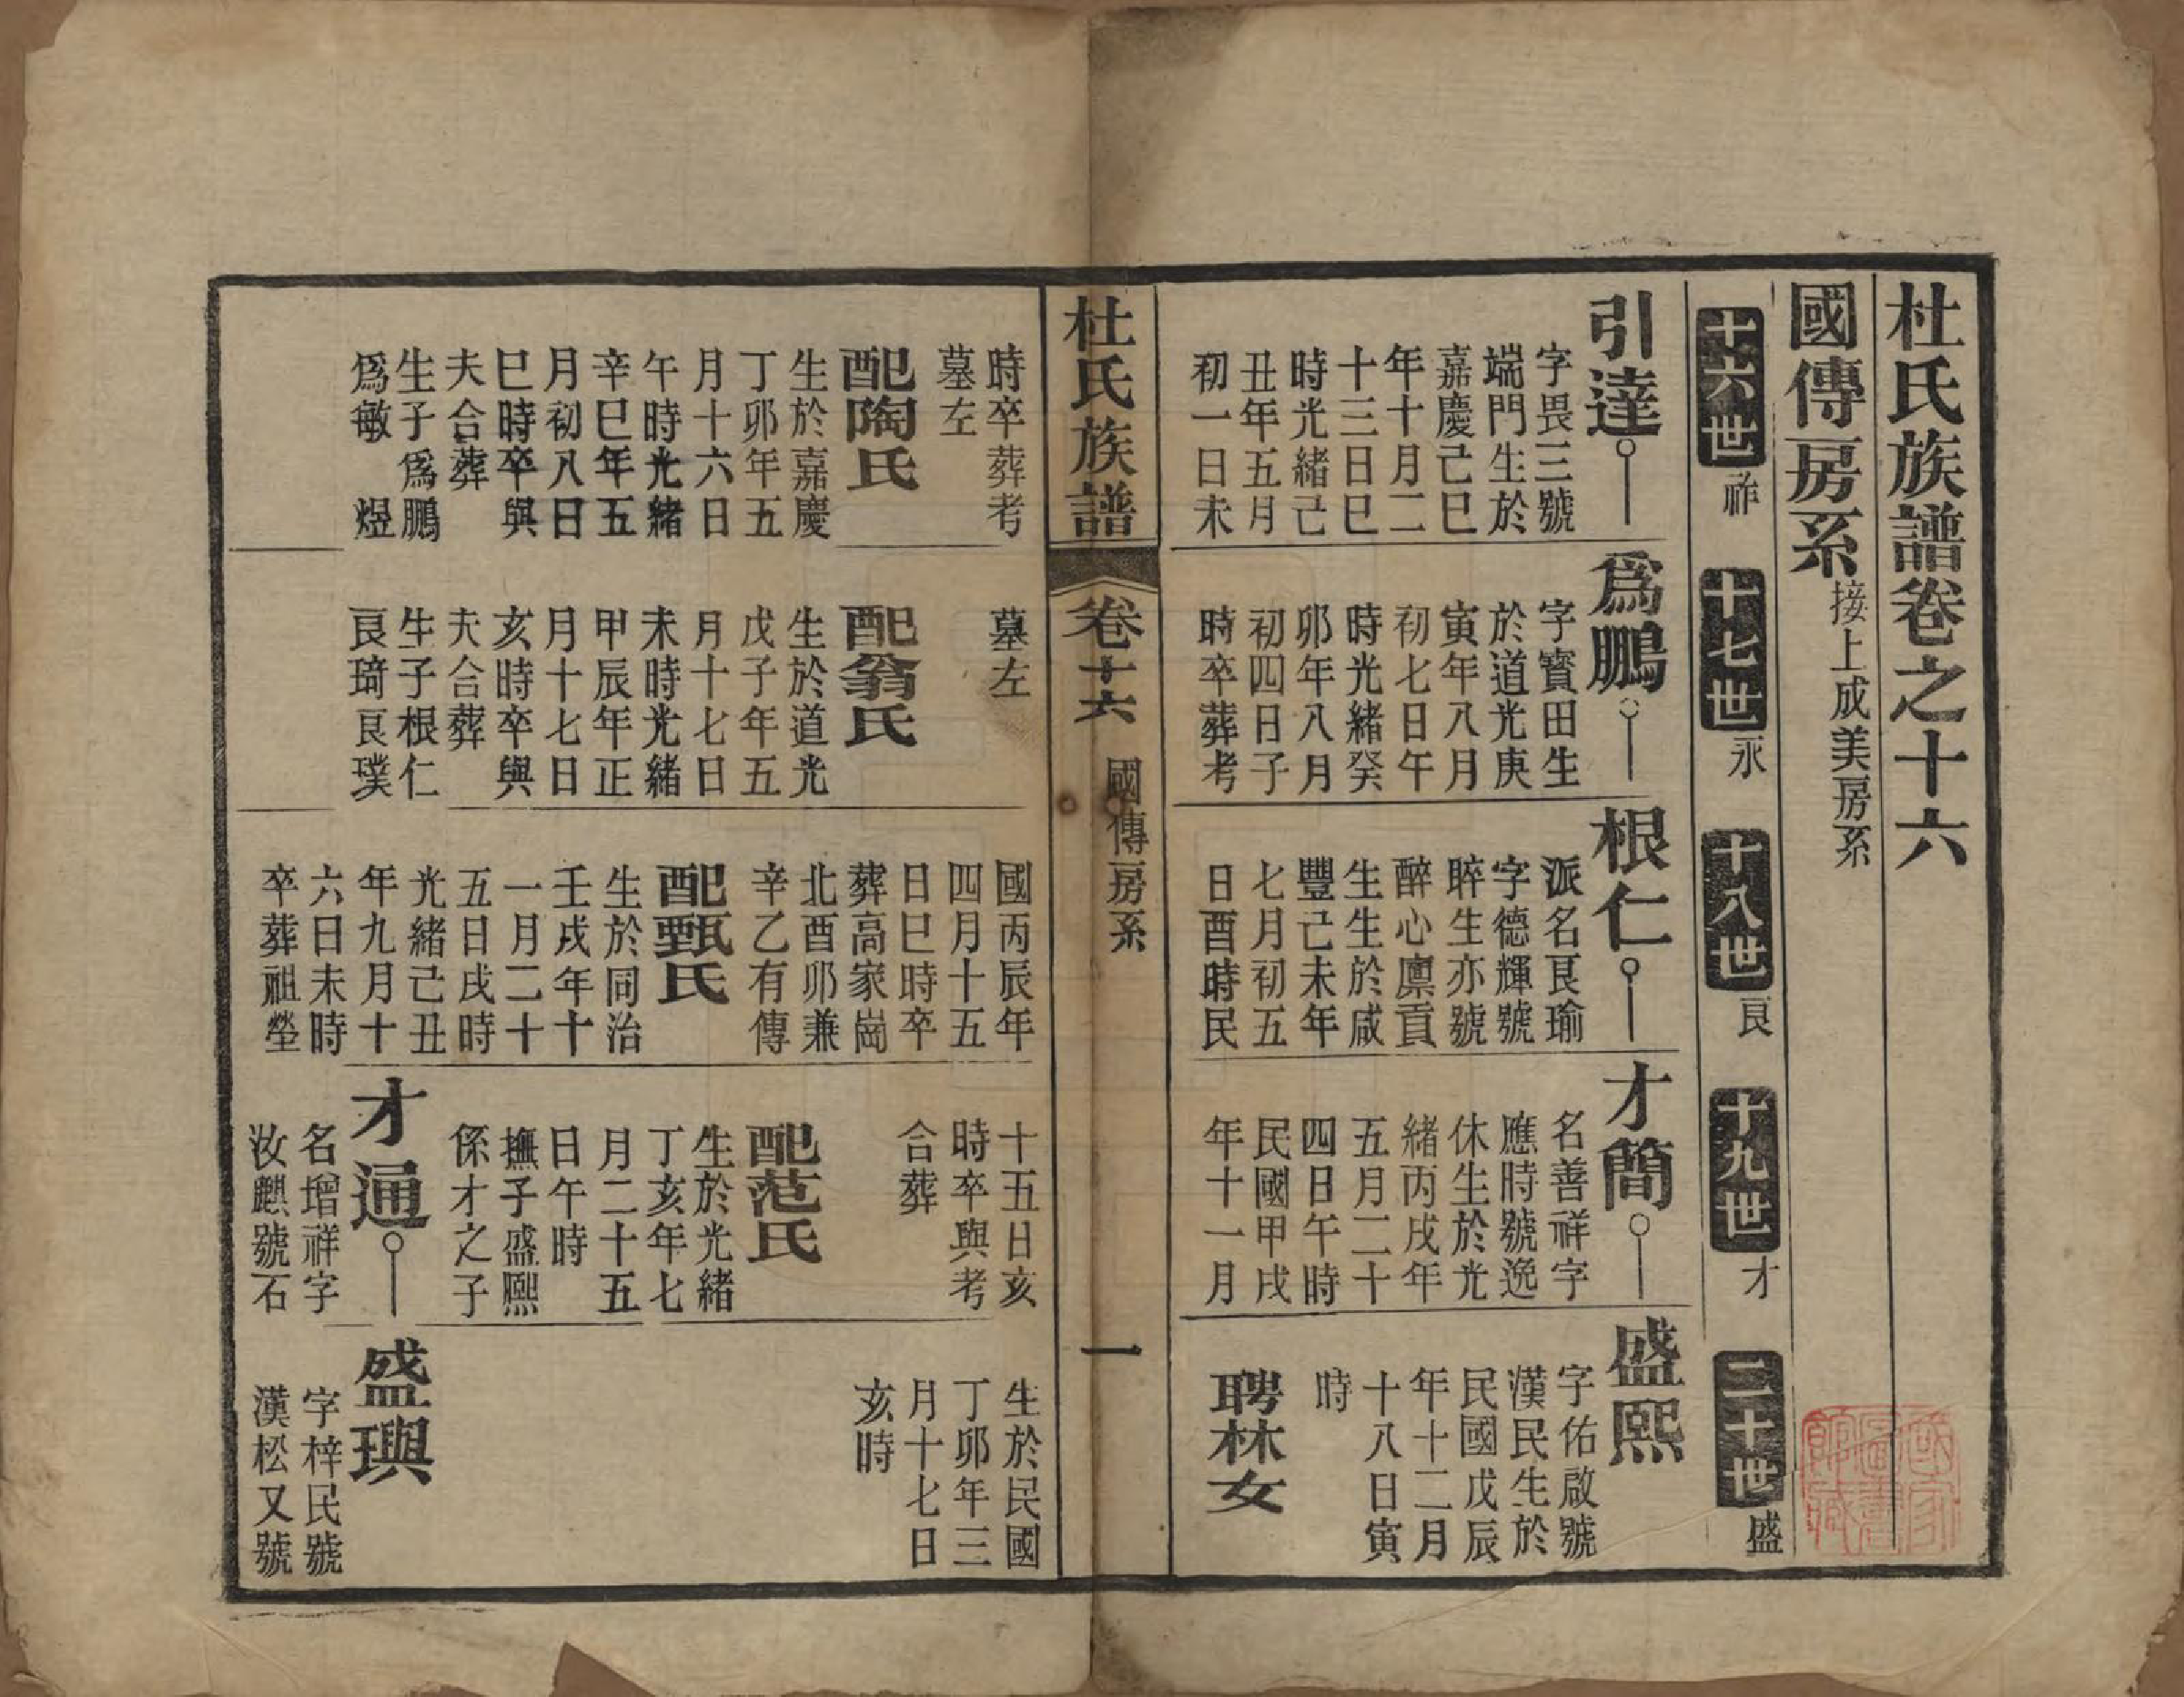 杜氏族譜卷之十六
國傳房系接上成美房系
十六世祚
十七世永
十八世良
十九世才
二十世盛
引達
字畏三號
端門生於
嘉慶己巳
年十月二
十三日巳
時光緒己
丑年五月
初一日未
爲鵬
字寶田生
於道光庚
寅年八月
初七日午
時光緒癸
卯年八月
初四日子
時卒葬考
根仁
派名良瑜
字德輝號
睟生亦號
醉心廩貢
生生於咸
豐己未年
七月初五
日酉時民
才簡
名善祥字
應時號逸
休生於光
緒丙戌年
五月二十
四日午時
民國甲戌
年十一月
盛熙
字佑啟號
漢民生於
民國戊辰
年十二月
十八日寅
時
聘林女
杜氏族譜
卷十六
國傳房系
一
時卒葬考
墓左
配陶氏
生於嘉慶
丁卯年五
月十六日
午時光緒
辛巳年五
月初八日
巳時卒與
夫合葬
生子爲鵬
爲敏 煜
墓左
配翁氏
生於道光
戊子年五
月十七日
未時光緒
甲辰年正
月十七日
亥時卒與
夫合葬
生子根仁
良琦良璞
國丙辰年
四月十五
日巳時卒
葬高家崗
北酉卯兼
辛乙有傳
配甄氏
生於同治
壬戌年十
一月二十
五日戌時
光緒己丑
年九月十
六日未時
卒葬祖塋
十五日亥
時卒與考
合葬
配范氏
生於光緒
丁亥年七
月二十五
日午時
撫子盛熙
係才之子
才通
名增祥字
汝麒號石
生於民國
丁卯年三
月十七日
亥時
盛璵
字梓民號
漢松又號